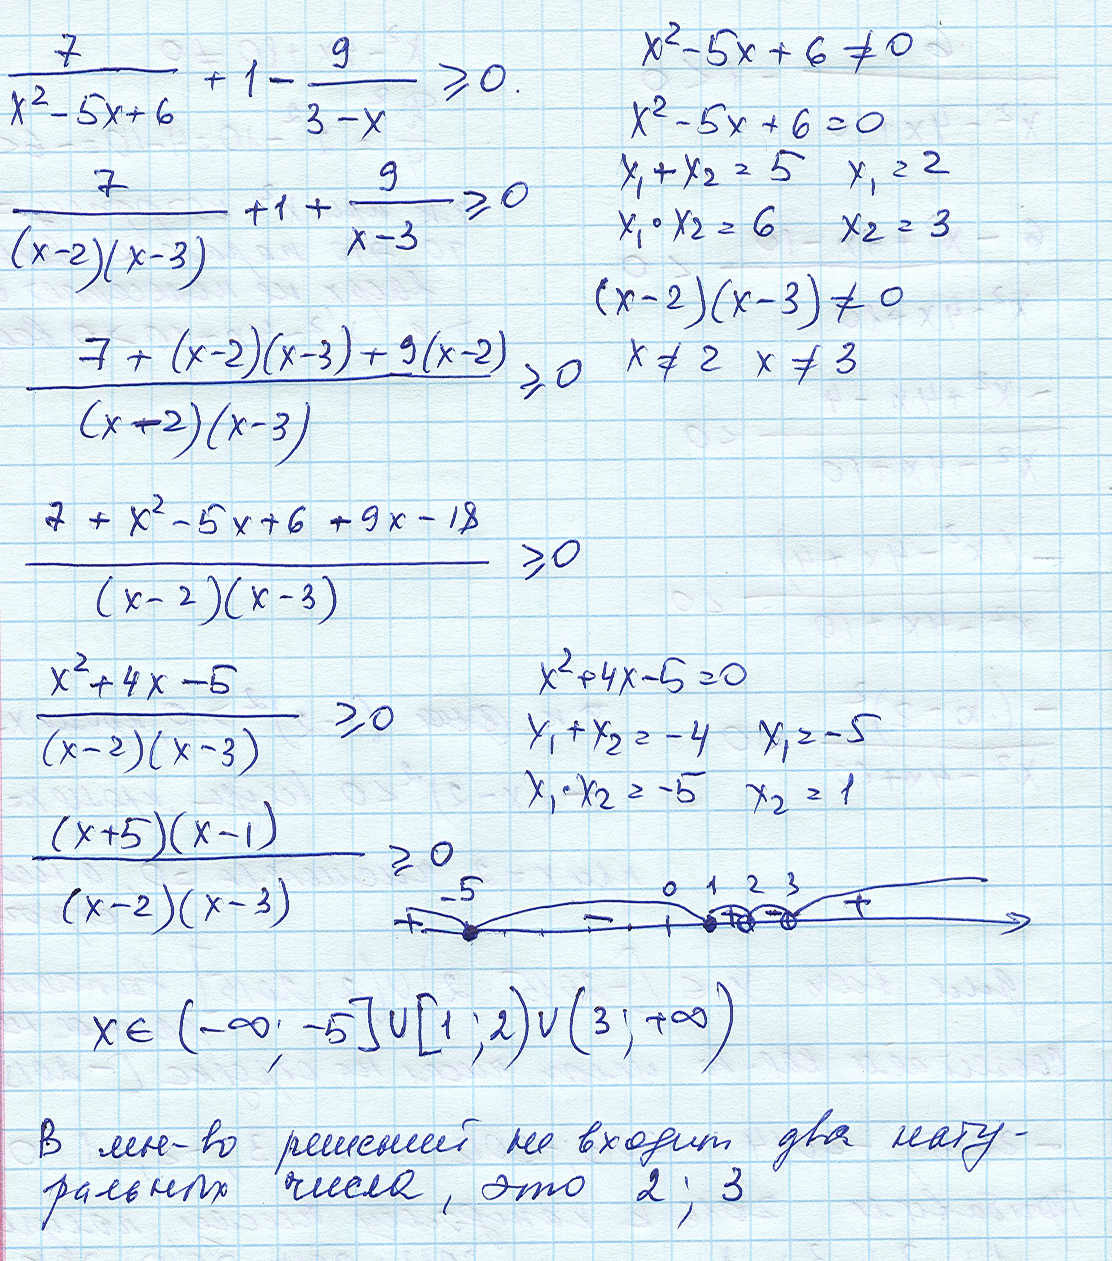 7/(x²-5x+6) + 1 - 9/(3-x) ⩾ 0.
x²-5x+6 ≠ 0
x²-5x+6=0
x₁+x₂=5 x₁=2
x₁·x₂=6 x₂=3
(x-2)(x-3)≠0
x≠2 x≠3
7/((x-2)(x-3)) +1+ 9/(x-3) ⩾ 0
(7+(x-2)(x-3)+9(x-2))/((x-2)(x-3)) ⩾ 0
(7+x²-5x+6+9x-18)/((x-2)(x-3)) ⩾ 0
(x²+4x-5)/((x-2)(x-3)) ⩾ 0
x²+4x-5=0
x₁+x₂=-4 x₁=-5
x₁·x₂=-5 x₂=1
((x+5)(x-1))/((x-2)(x-3)) ⩾ 0
-5 0 1 2 3
+ - + - +
x∈(-∞; -5]∪[1;2)∪(3;+∞)
В мн-во решений не входит два нату-
ральных числа, это 2; 3